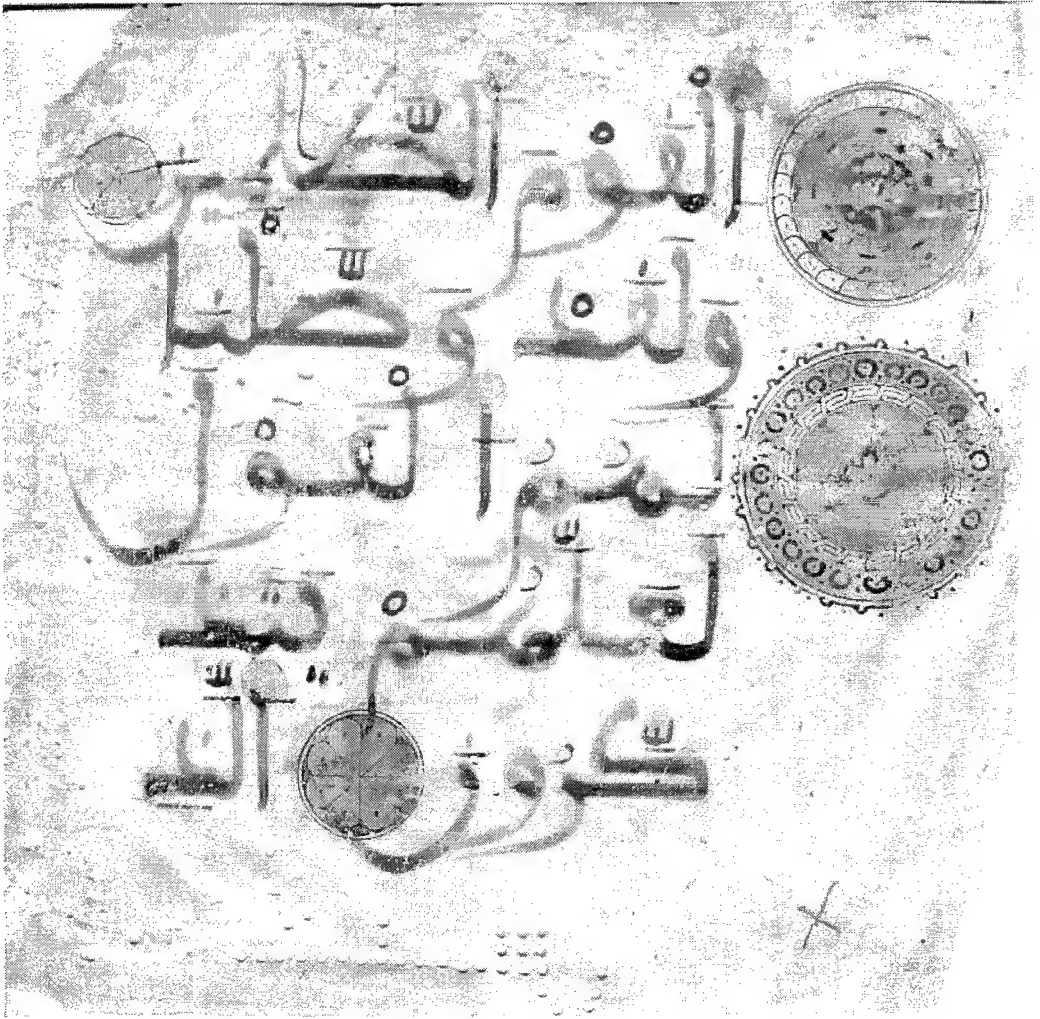 ٱلْقَوْمَ ٱلظَّلِمِينَ
وَلَقَدْ وَصَّلْنَا
لَهُمُ ٱلْقَوْلَ
لَعَلَّهُمْ يَتَذَ
كَّرُونَ ٱلَّذِ